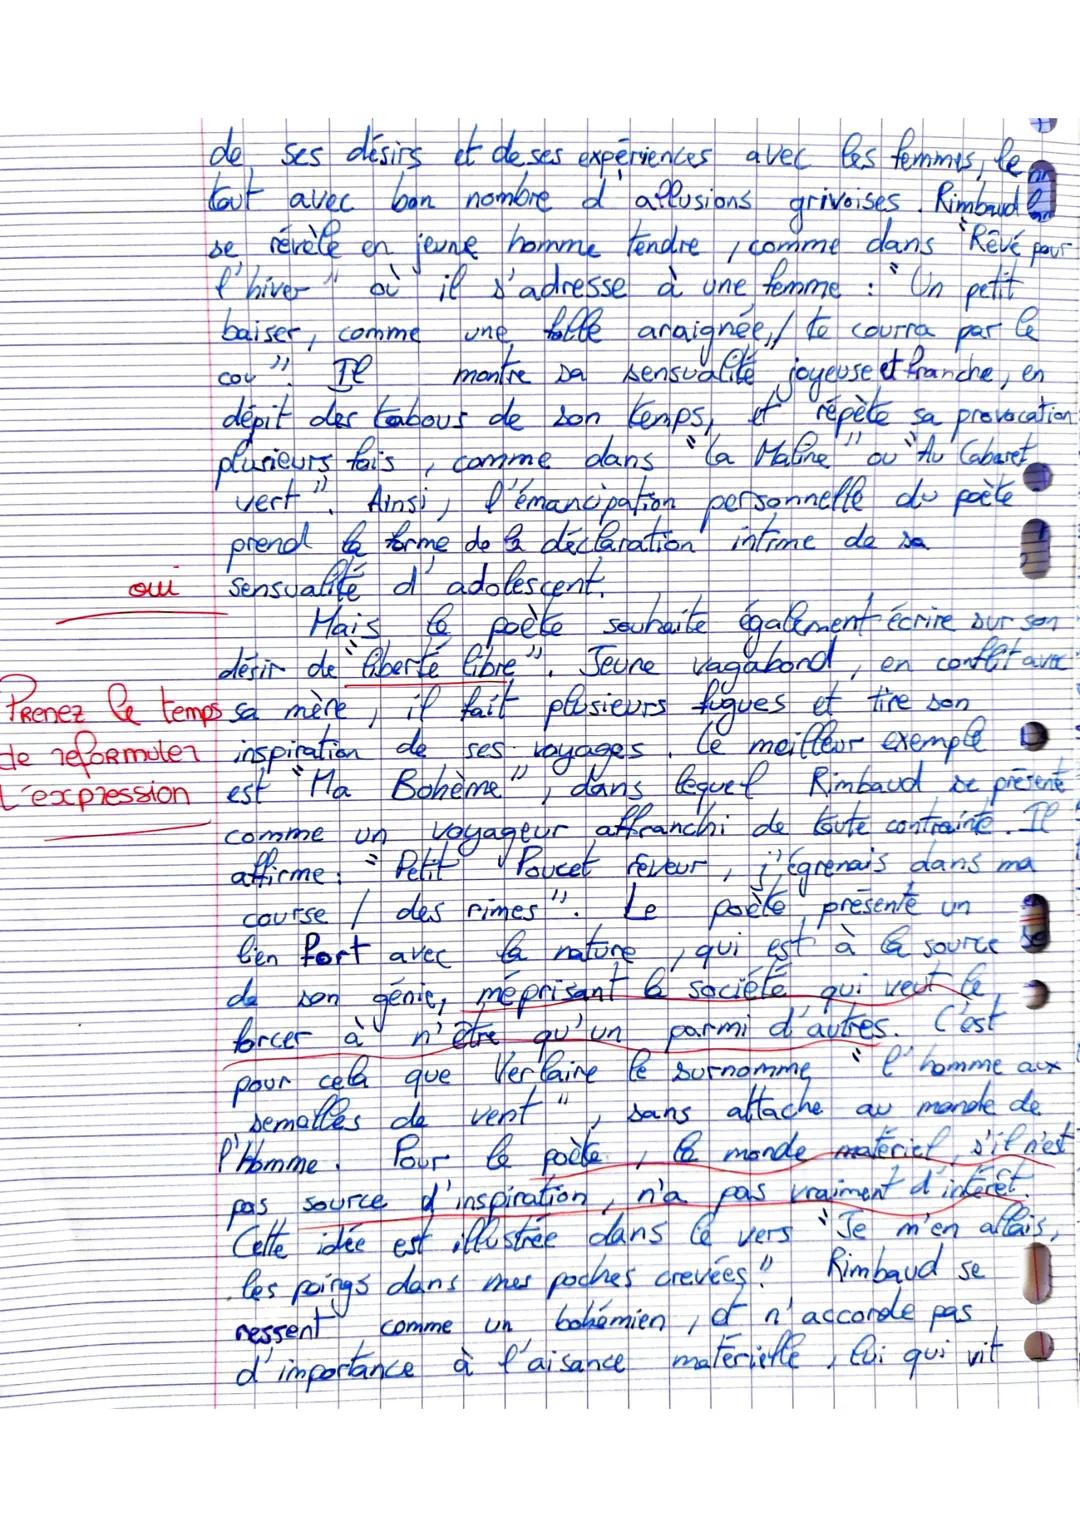 de ses désirs et de ses expériences avec les femmes, le
tout avec bon nombre d'allusions grivoises. Rimbaud
se révèle en jeune homme tendre, comme dans "Rêvé pour
l'hiver" où il s'adresse à une femme : "Un petit
baiser, comme une folle araignée,/ te courra par le
cou". Il montre sa sensualité joyeuse et franche, en
dépit des tabous de son temps, et répète sa provocation
plusieurs fois, comme dans "La Maline" ou "Au Cabaret
vert". Ainsi, l'émancipation personnelle du poète
prend la forme de la déclaration intime de sa
oui
sensualité d'adolescent.
Mais le poète souhaite également écrire sur son
désir de "liberté libre". Jeune vagabond, en conflit avec
Prenez le temps
de reformuler
l'expression
sa mère, il fait plusieurs fugues et tire son
inspiration de ses voyages. Le meilleur exemple
est "Ma Bohème", dans lequel Rimbaud se présente
comme un voyageur affranchi de toute contrainte. Il
affirme : "Petit Poucet rêveur, j'égrenais dans ma
course / des rimes". Le poète présente un
lien fort avec la nature, qui est à la source
de son génie, méprisant la société qui veut le
forcer à n'être qu'un parmi d'autres. C'est
pour cela que Verlaine le surnomme "l'homme aux
semelles de vent", sans attache au monde de
l'Homme. Pour le poète, le monde matériel, s'il n'est
pas source d'inspiration, n'a pas vraiment d'intérêt.
Cette idée est illustrée dans le vers "Je m'en allais,
les poings dans mes poches crevées". Rimbaud se
ressent comme un bohémien, et n'accorde pas
d'importance à l'aisance matérielle, lui qui vit